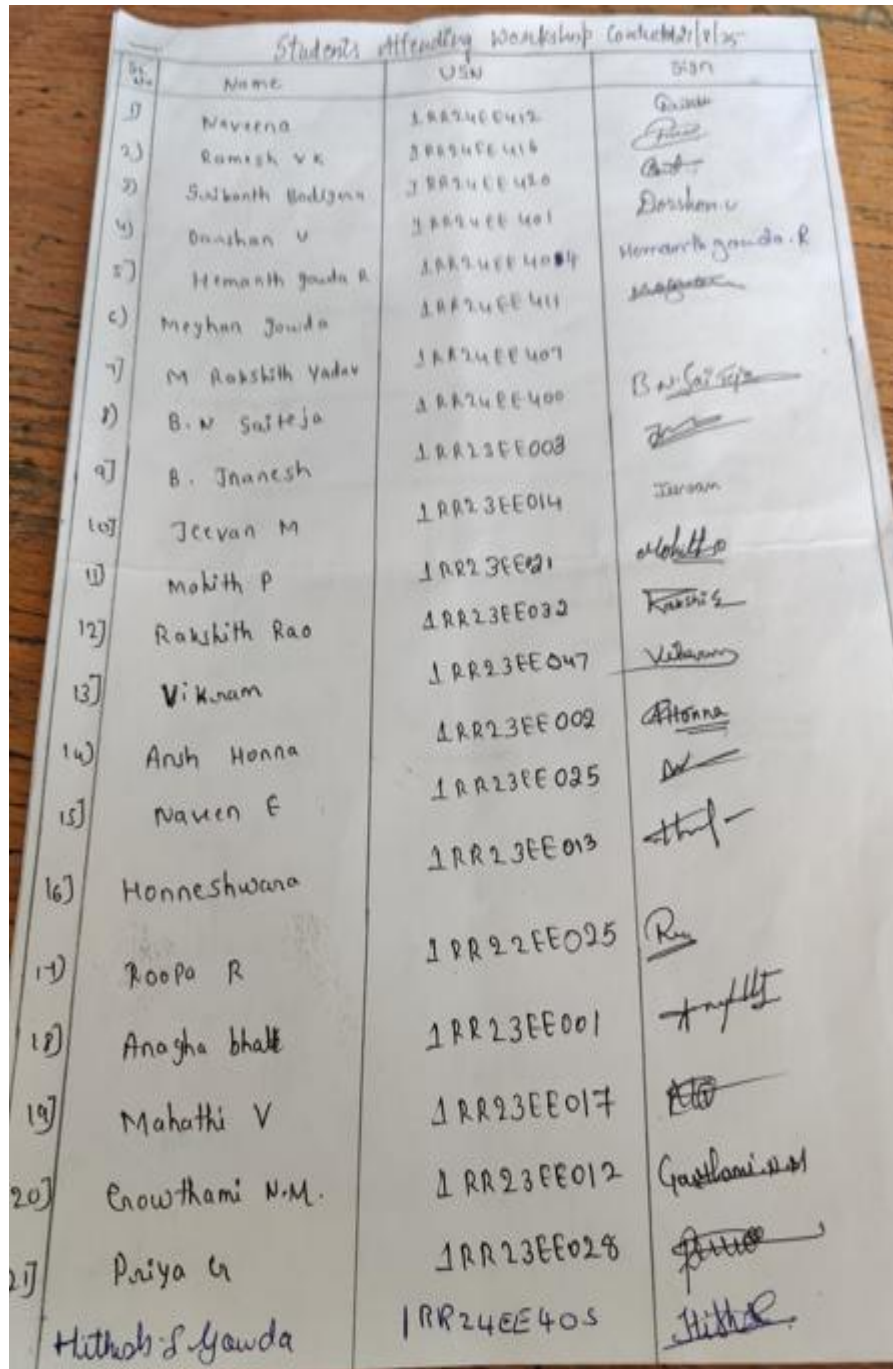 Students Attending Workshop
Name USN Sign
1) Naveena 1RR24EE412
2) Ramesh V K 1RR24EE416
3) 1RR24EE420
4) Darshan V 1RR24EE401 Darshan.v
5] Hemanth gowda R Hemanth gowda.R
6) Meghan Gowda 1RR24EE411
7] M Rakshith Yadav 1RR24EE407
8) B.N Saiteja 1RR24EE400 B.N.Sai Teja
9] B. Jnanesh 1RR23EE003
10] Jeevan M 1RR23EE014 Jeevan
11) Mohith P 1RR23EE021 Mohith
12] Rakshith Rao 1RR23EE032
13] Vikram 1RR23EE047 Vikram
14) Arsh Honna 1RR23EE002 AHonna
15] Naveen E 1RR23EE025
16] Honneshwara 1RR23EE013
17) Roopa R 1RR22EE025
18) Anagha bhatt 1RR23EE001
19] Mahathi V 1RR23EE017
20] Gowthami N.M. 1RR23EE012 Gowthami.N.M
21] Priya G 1RR23EE028
Hithesh.S Gowda 1RR24EE405